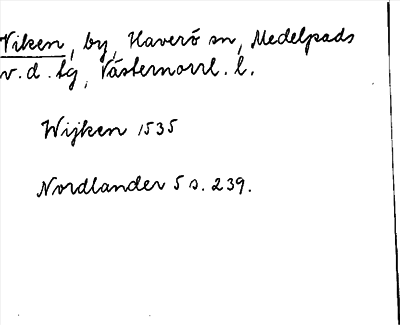 Viken, by, Haverö sn, Medelpads
v. d. tg, Västernorrl. l.
Wijken 1535
Nordlander 5 s. 239.